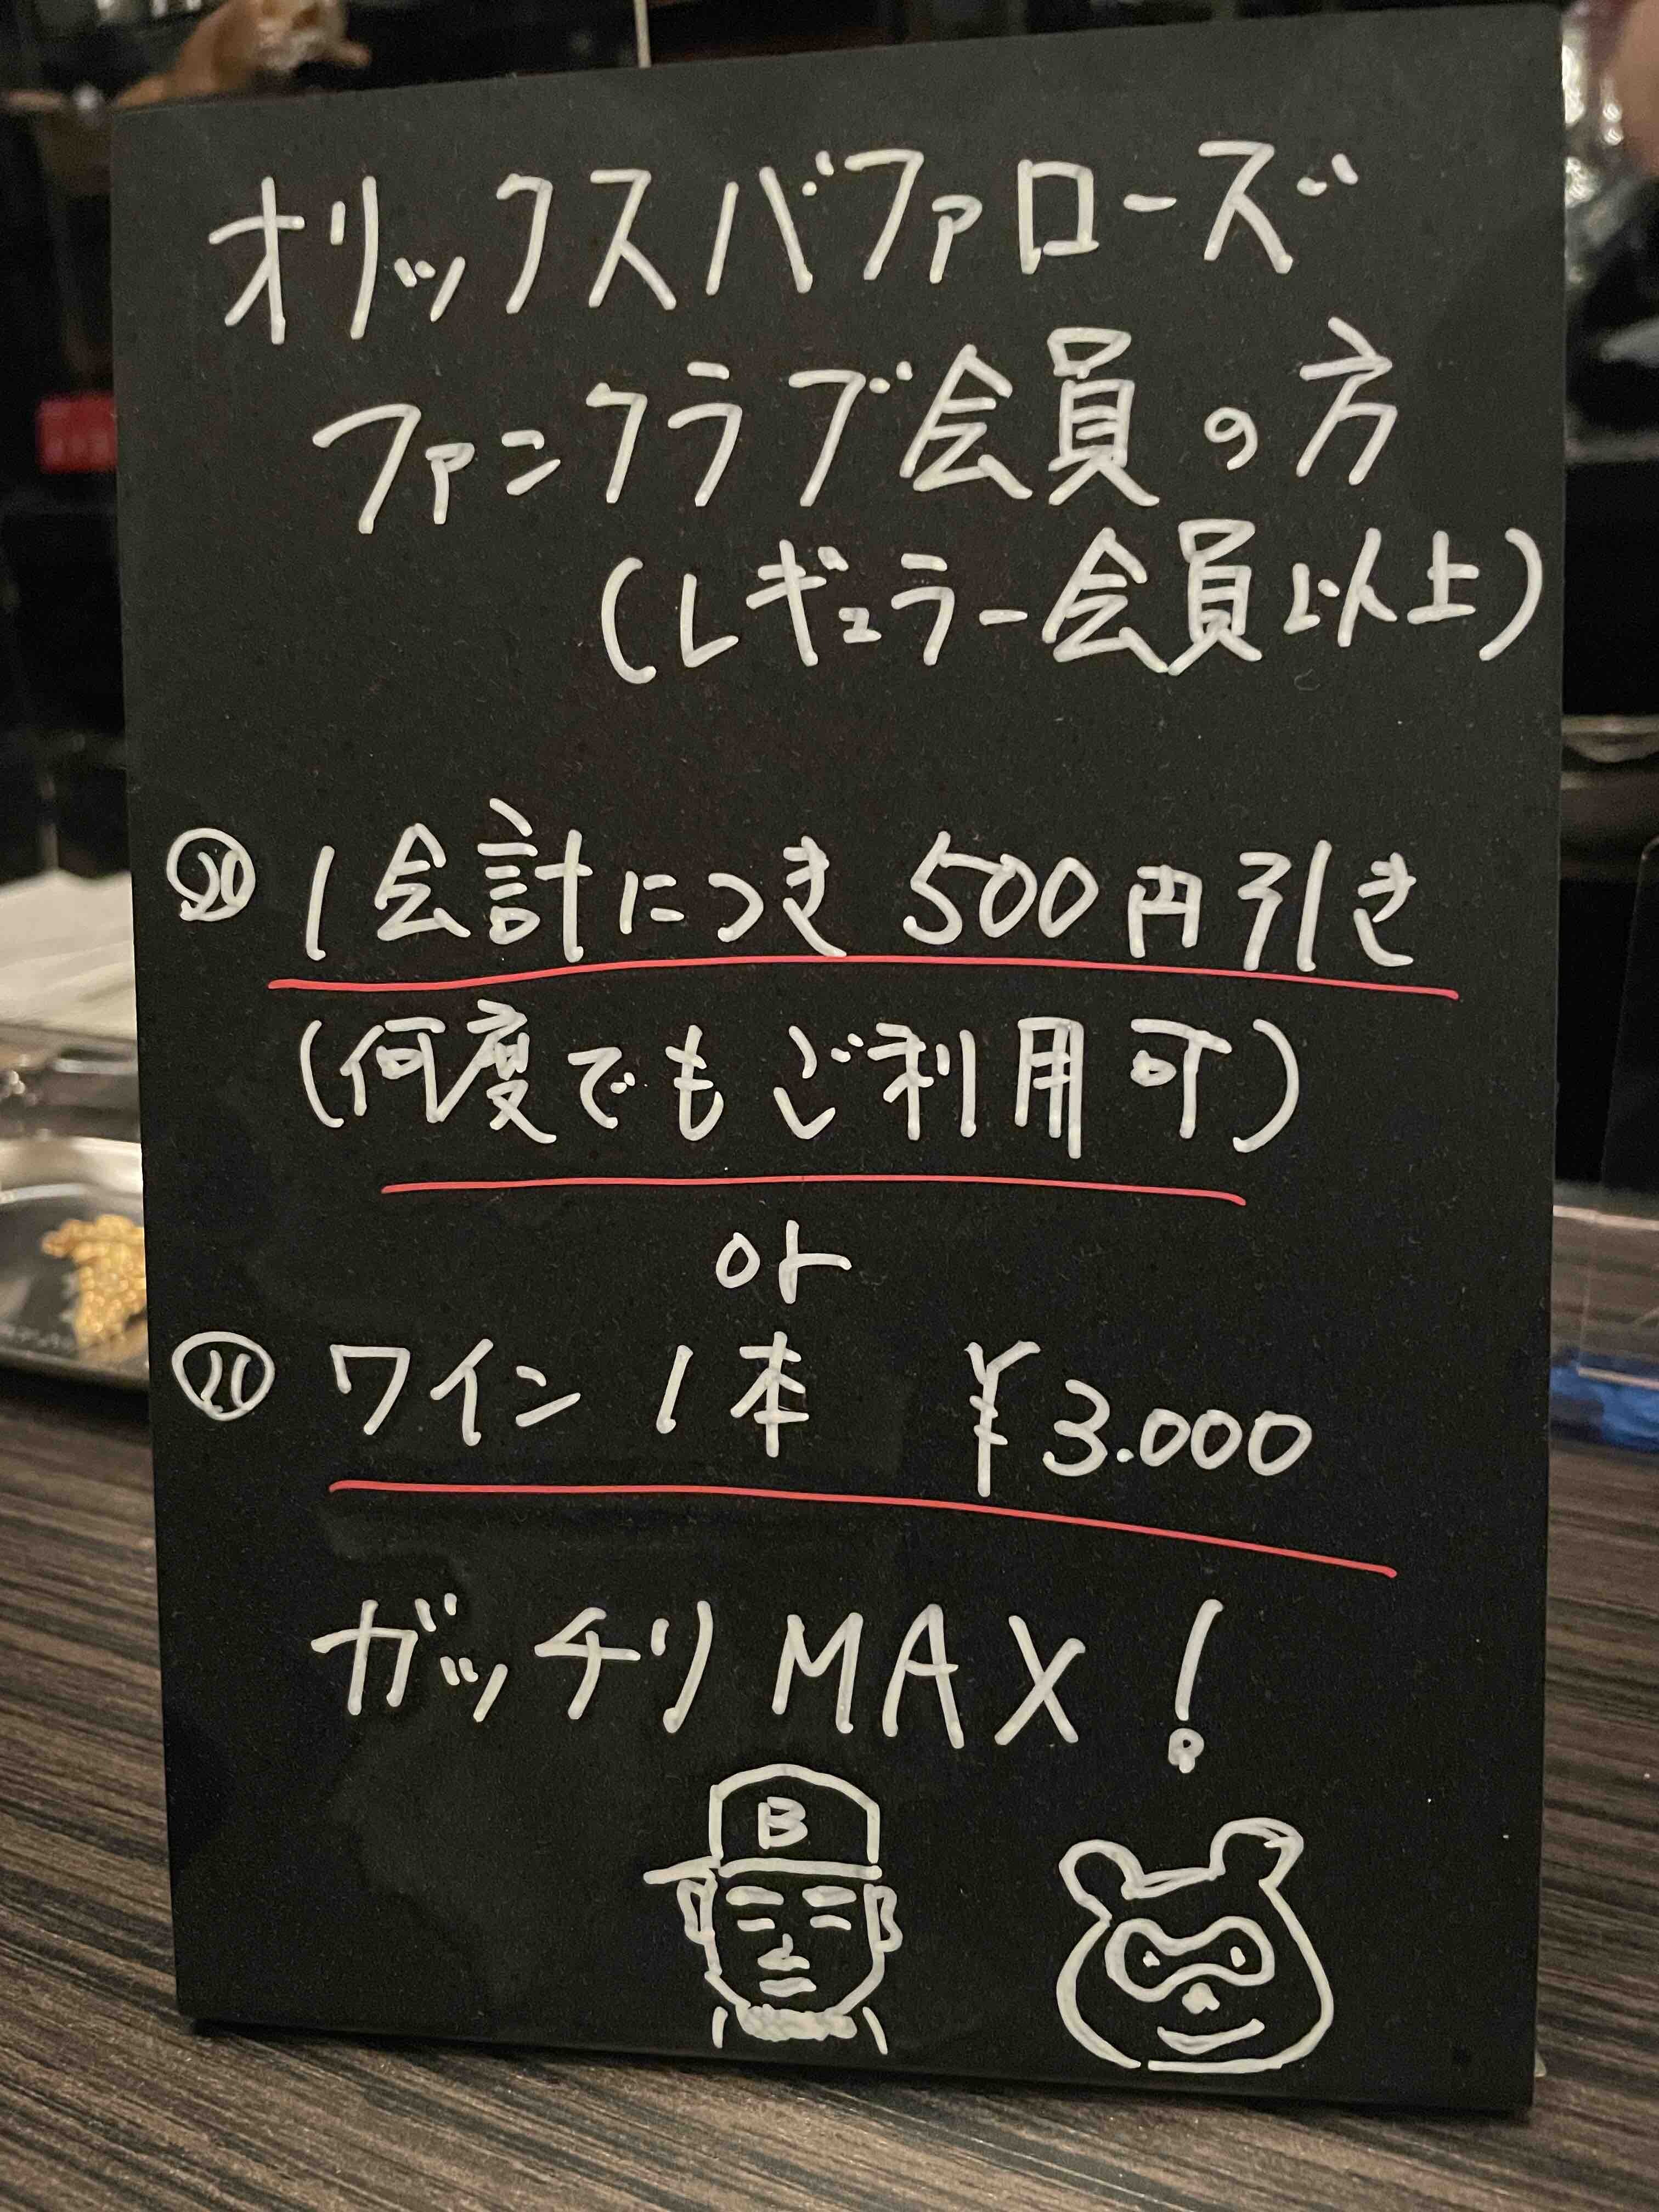 オリックスバファローズ
ファンクラブ会員の方
(レギュラー会員以上)
1会計につき 500円引き
(何度でもご利用可)
or
ワイン 1本 ¥3.000
ガッチリMAX!
B